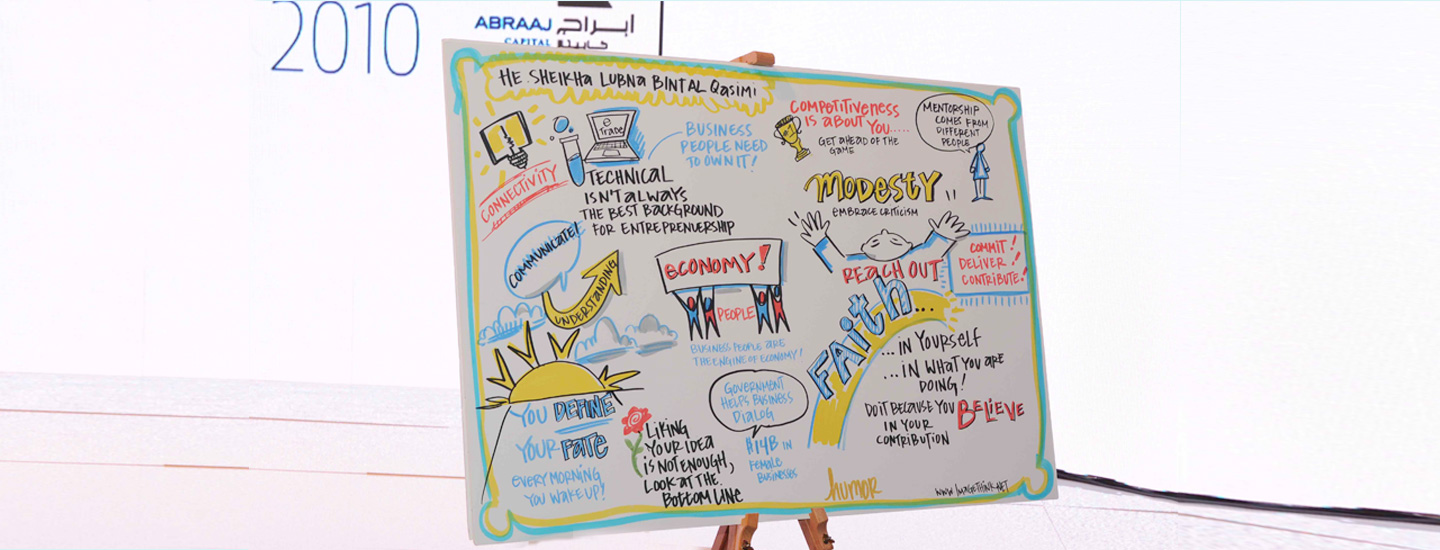 2010
ABRAAJ ابراج
CAPITAL كابيتال
HE. SHEIKHA LUBNA BINT AL QASIMI
e
TRADE
BUSINESS
PEOPLE NEED
TO OWN IT!
CONNECTIVITY
TECHNICAL
ISN'T ALWAYS
THE BEST BACKGROUND
FOR ENTREPRENUERSHIP
COMMUNICATE!
UNDERSTANDING
ECONOMY!
PEOPLE
BUSINESS PEOPLE ARE
THE ENGINE OF ECONOMY!
YOU DEFINE
YOUR FATE
EVERY MORNING
YOU WAKE UP!
LIKING
YOUR IDEA
IS NOT ENOUGH,
LOOK AT THE
BOTTOM LINE
GOVERNMENT
HELPS BUSINESS
DIALOG
$14B IN
FEMALE
BUSINESSES
#1
COMPETITIVENESS
IS ABOUT YOU....
GET AHEAD OF THE
GAME
MENTORSHIP
COMES FROM
DIFFERENT
PEOPLE
MODESTY
EMBRACE CRITICISM
REACH OUT
COMMIT!
DELIVER!
CONTRIBUTE!
FAITH...
...IN YOURSELF
...IN WHAT YOU ARE
DOING!
DO IT BECAUSE YOU BELIEVE
IN YOUR
CONTRIBUTION
humor
WWW.IMAGETHINK.NET